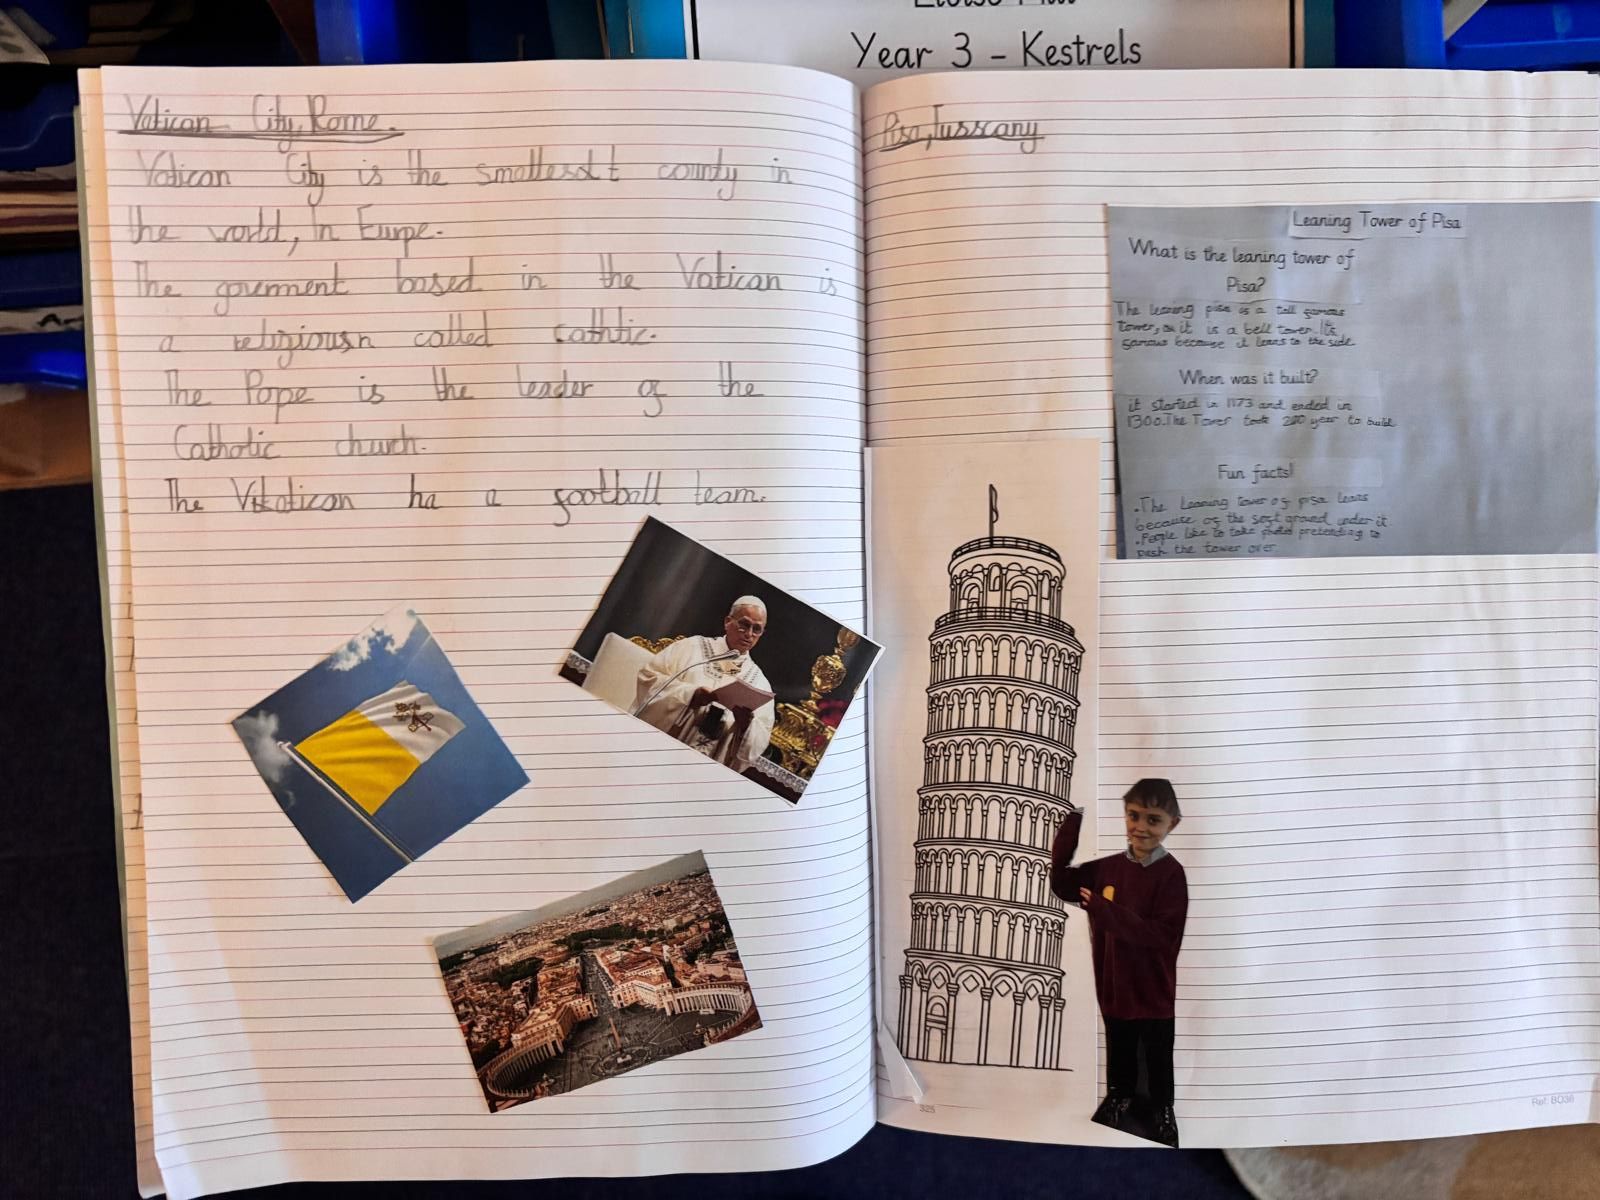 Year 3 - Kestrels
Vatican City, Rome.
Vatican City is the smallesdt county in
the world, In Eurpe.
The goverment based in the Vatican is
a religiousn called cathtic.
The Pope is the leader of the
Catholic church.
The Vatican ha a football team.
Pisa, Tusscany
Leaning Tower of Pisa
What is the leaning tower of
Pisa?
The leaning pisa is a tall famous
tower, as it is a bell tower. Its
famous because it leans to the side.
When was it built?
it started in 1173 and ended in
1300. The Tower took 200 year to build
Fun facts!
. The Leaning tower of pisa leans
because of the soft ground under it
. People like to take photos pretending to
push the tower over
325
Ref: BO36